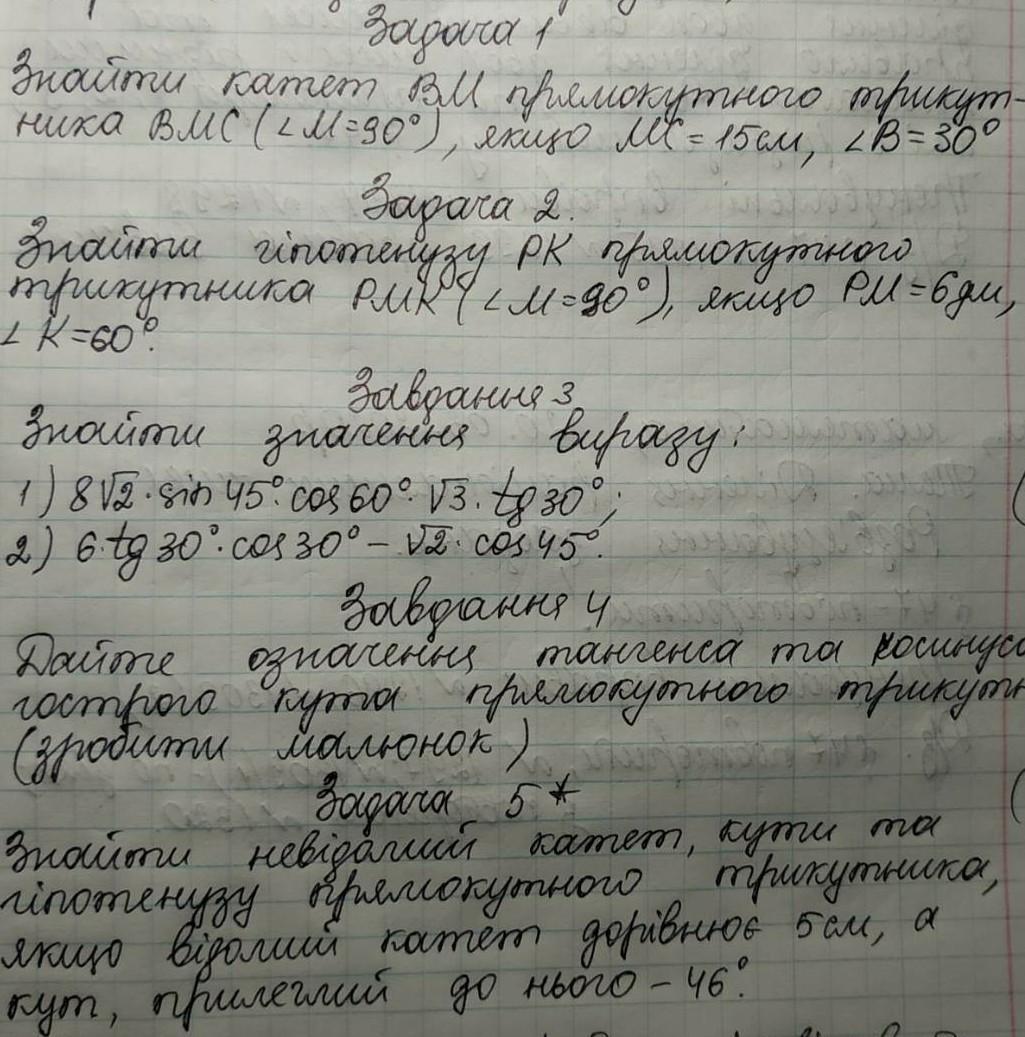 Задача 1
Знайти катет ВМ прямокутного трикут-
ника ВМС (∠М=90°), якщо МС = 15см, ∠В=30°
Задача 2.
Знайти гіпотенузу РК прямокутного
трикутника РМК (∠М=90°), якщо РМ=6дм,
∠К=60°.
Завдання 3
Знайти значення виразу:
1) 8√2·sin45°·cos60°·√3·tg30°;
2) 6·tg30°·cos30°-√2·cos45°.
Завдання 4
Дайте означення тангенса та косинуса
гострого кута прямокутного трикутн
(зробити малюнок)
Задача 5*
Знайти невідомий катет, кути та
гіпотенузу прямокутного трикутника,
якщо відомий катет дорівнює 5см, а
кут, прилеглий до нього - 46°.